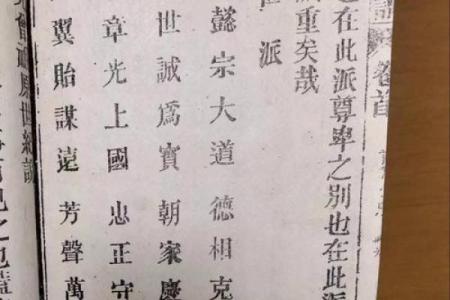 卷首
在此派尊卑之別也在此派
重矣哉
派
懿宗大道德相克
世誠爲寶朝家慶
章光上國忠正守
翼貽謀遠芳聲萬